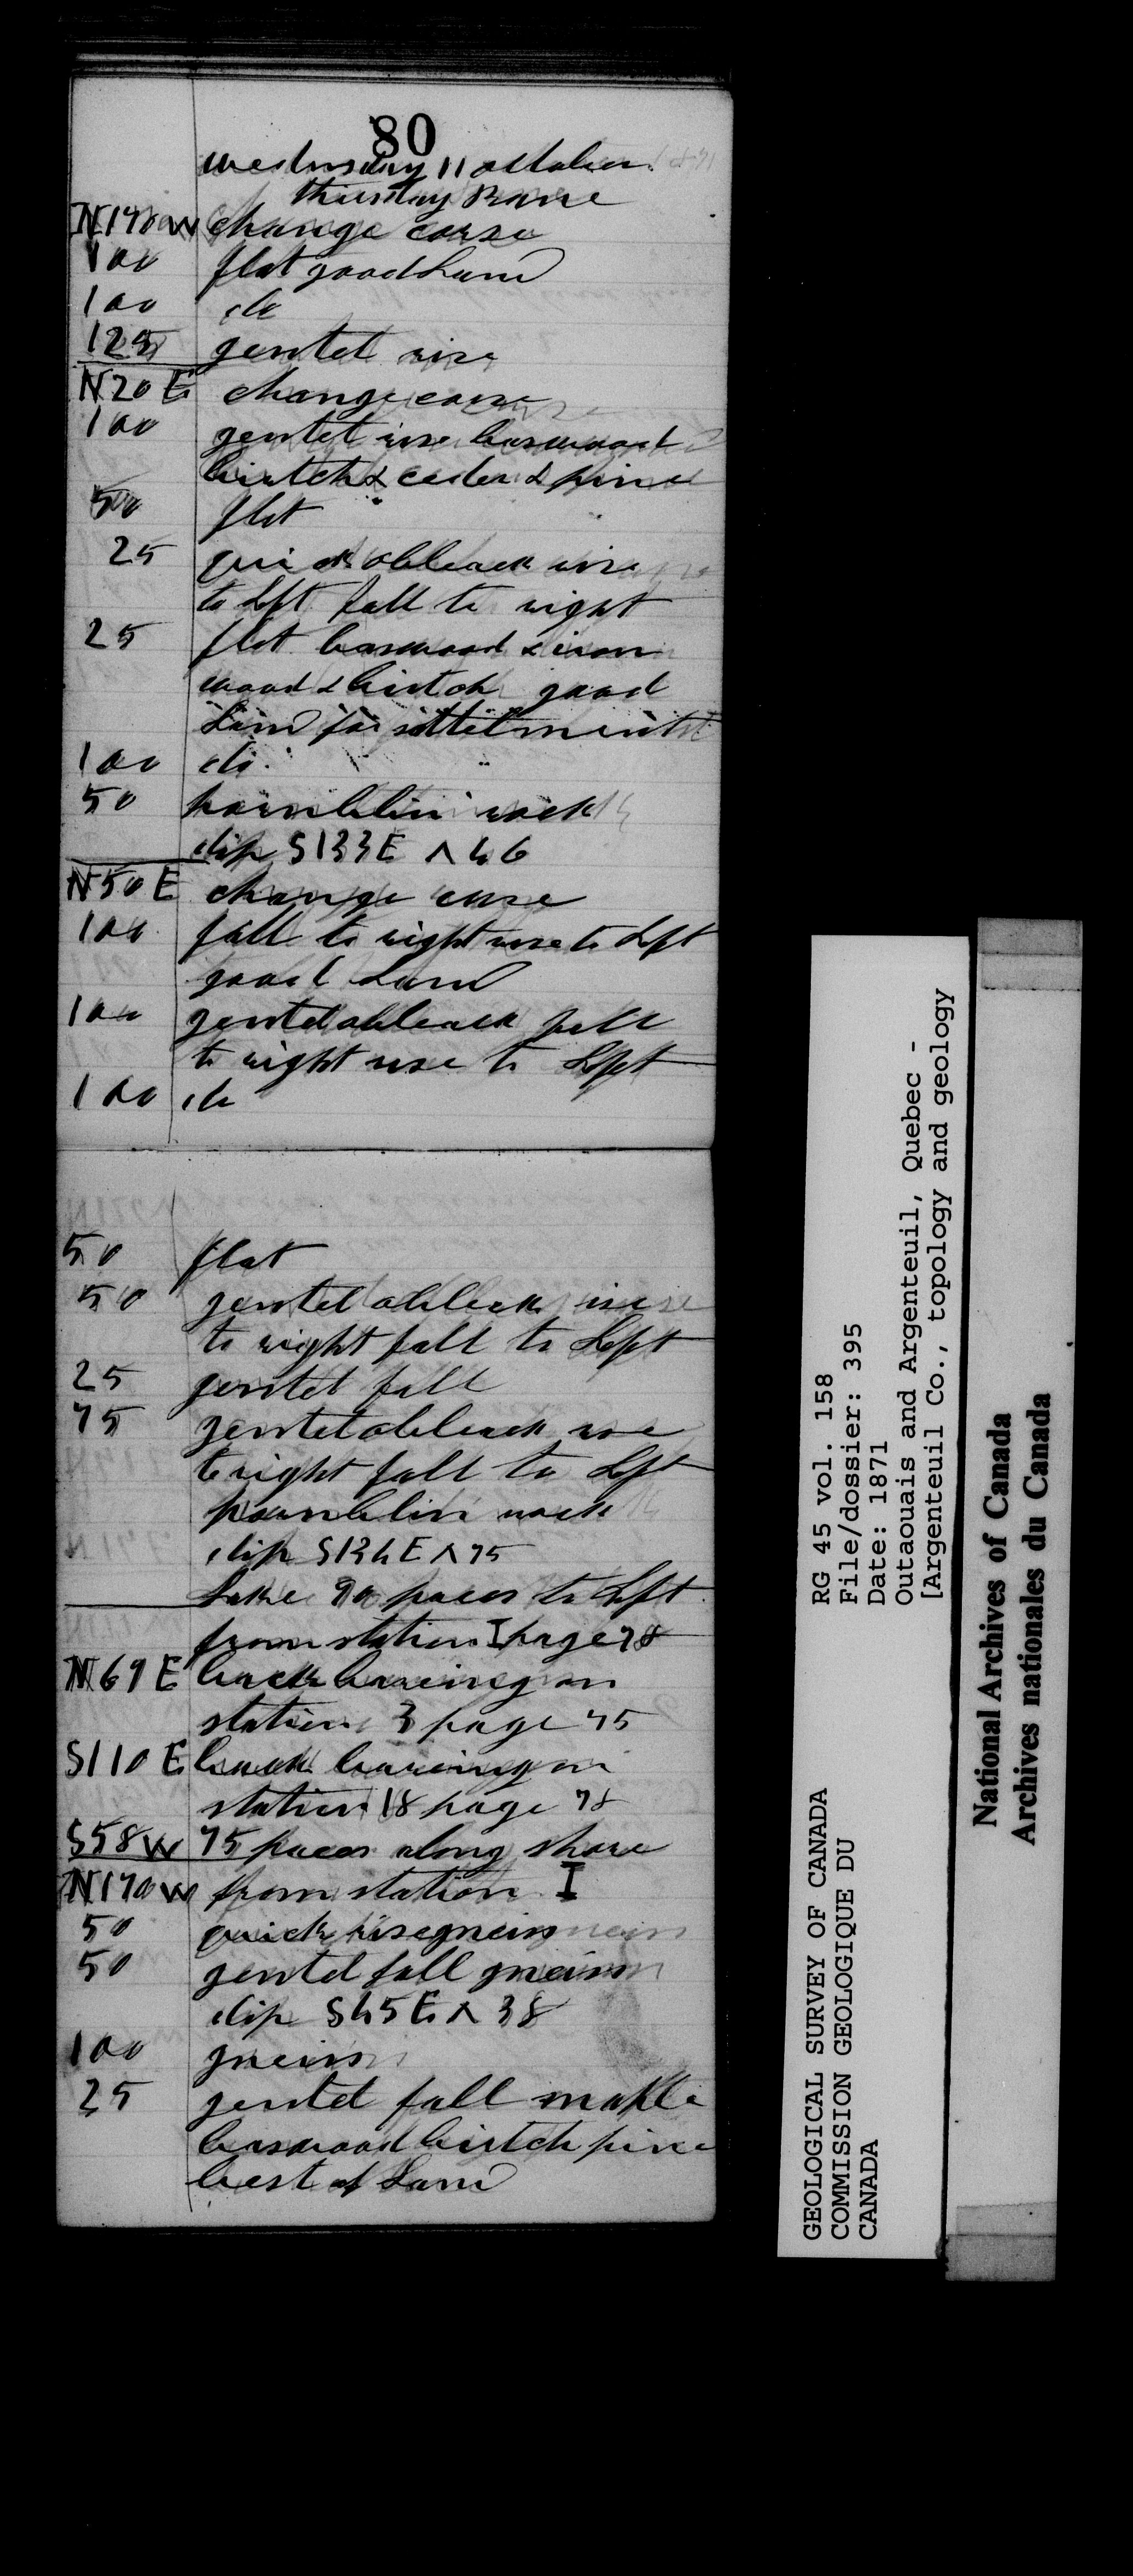 80
wednsday 11 octaber
thursday Rane
N170W change corse
100 flat good Land
100 do
125 gentel rise
N20E change corse
100 gentel rise baswood
birtch & ceder & pine
50 flat
25 quick obleack rise
to Left fall to right
25 flat baswood & iron
wood & birtch good
Land for settelment
100 do
50 hornblin rock
dip S133E ^ 46
N50E change corse
100 fall to right rise to Left
good Land
100 gentel obleack fall
to right rise to Left
100 do
50 flat
50 gentel obleack rise
to right fall to Left
25 gentel fall
75 gentel obleack rise
to right fall to Left
hornblin rock
dip S134E ^ 75
Lake 90 paces to Left
from station I page 78
N69E back baring on
station 3 page 75
S110E back baring on
station 18 page 78
S58W 75 paces along shore
N170W from station I
50 quick rise gneiss
50 gentel fall gneiss
dip S45E ^ 38
100 gneiss
25 gentel fall maple
baswood birtch pine
best of Land
GEOLOGICAL SURVEY OF CANADA
COMMISSION GEOLOGIQUE DU
CANADA
RG 45 vol. 158
File/dossier: 395
Date: 1871
Outaouais and Argenteuil, Quebec -
[Argenteuil Co., topology and geology
National Archives of Canada
Archives nationales du Canada